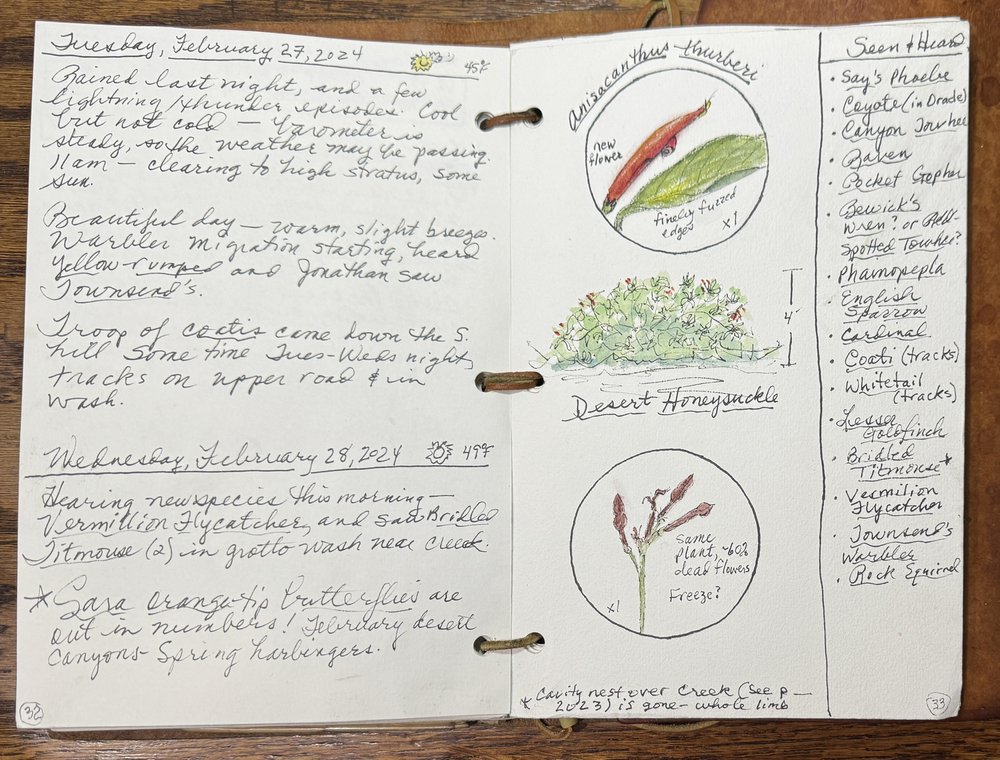 Tuesday, February 27, 2024 45°F
Rained last night, and a few
lightning/thunder episodes. Cool
but not cold — Barometer is
steady, so the weather may be passing.
11am — clearing to high stratus, some
sun.
Beautiful day — warm, slight breeze.
Warbler migration starting, heard
Yellow-rumped and Jonathan saw
Townsend's.
Troop of coatis came down the S.
hill some time Tues-Weds night,
tracks on upper road & in
wash.
Wednesday, February 28, 2024 49°F
Hearing new species this morning —
Vermillion Flycatcher, and saw Bridled
Titmouse (2) in grotto wash near creek.
★ Sara orange-tip butterflies are
out in numbers! February desert
canyons - Spring harbingers.
32
Anisacanthus thurberi
new
flower
finely fuzzed
edges
x1
4'
Desert Honeysuckle
same
plant, ~60%
dead flowers
Freeze?
x1
* Cavity nest over creek (see p —
2023) is gone - whole limb
Seen & Heard
• Say's Phoebe
• Coyote (in Drade)
• Canyon Towhee
• Raven
• Pocket Gopher
• Bewick's
Wren? or
Spotted Towhee?
• Phainopepla
• English
Sparrow
• Cardinal
• Coati (tracks)
• Whitetail
(tracks)
• Lesser
Goldfinch
• Bridled
Titmouse*
• Vermilion
Flycatcher
• Townsend's
Warbler
• Rock Squirrel
33